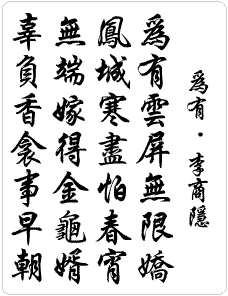 為有・李商隱
為有雲屏無限嬌
鳳城寒盡怕春宵
無端嫁得金龜婿
辜負香衾事早朝